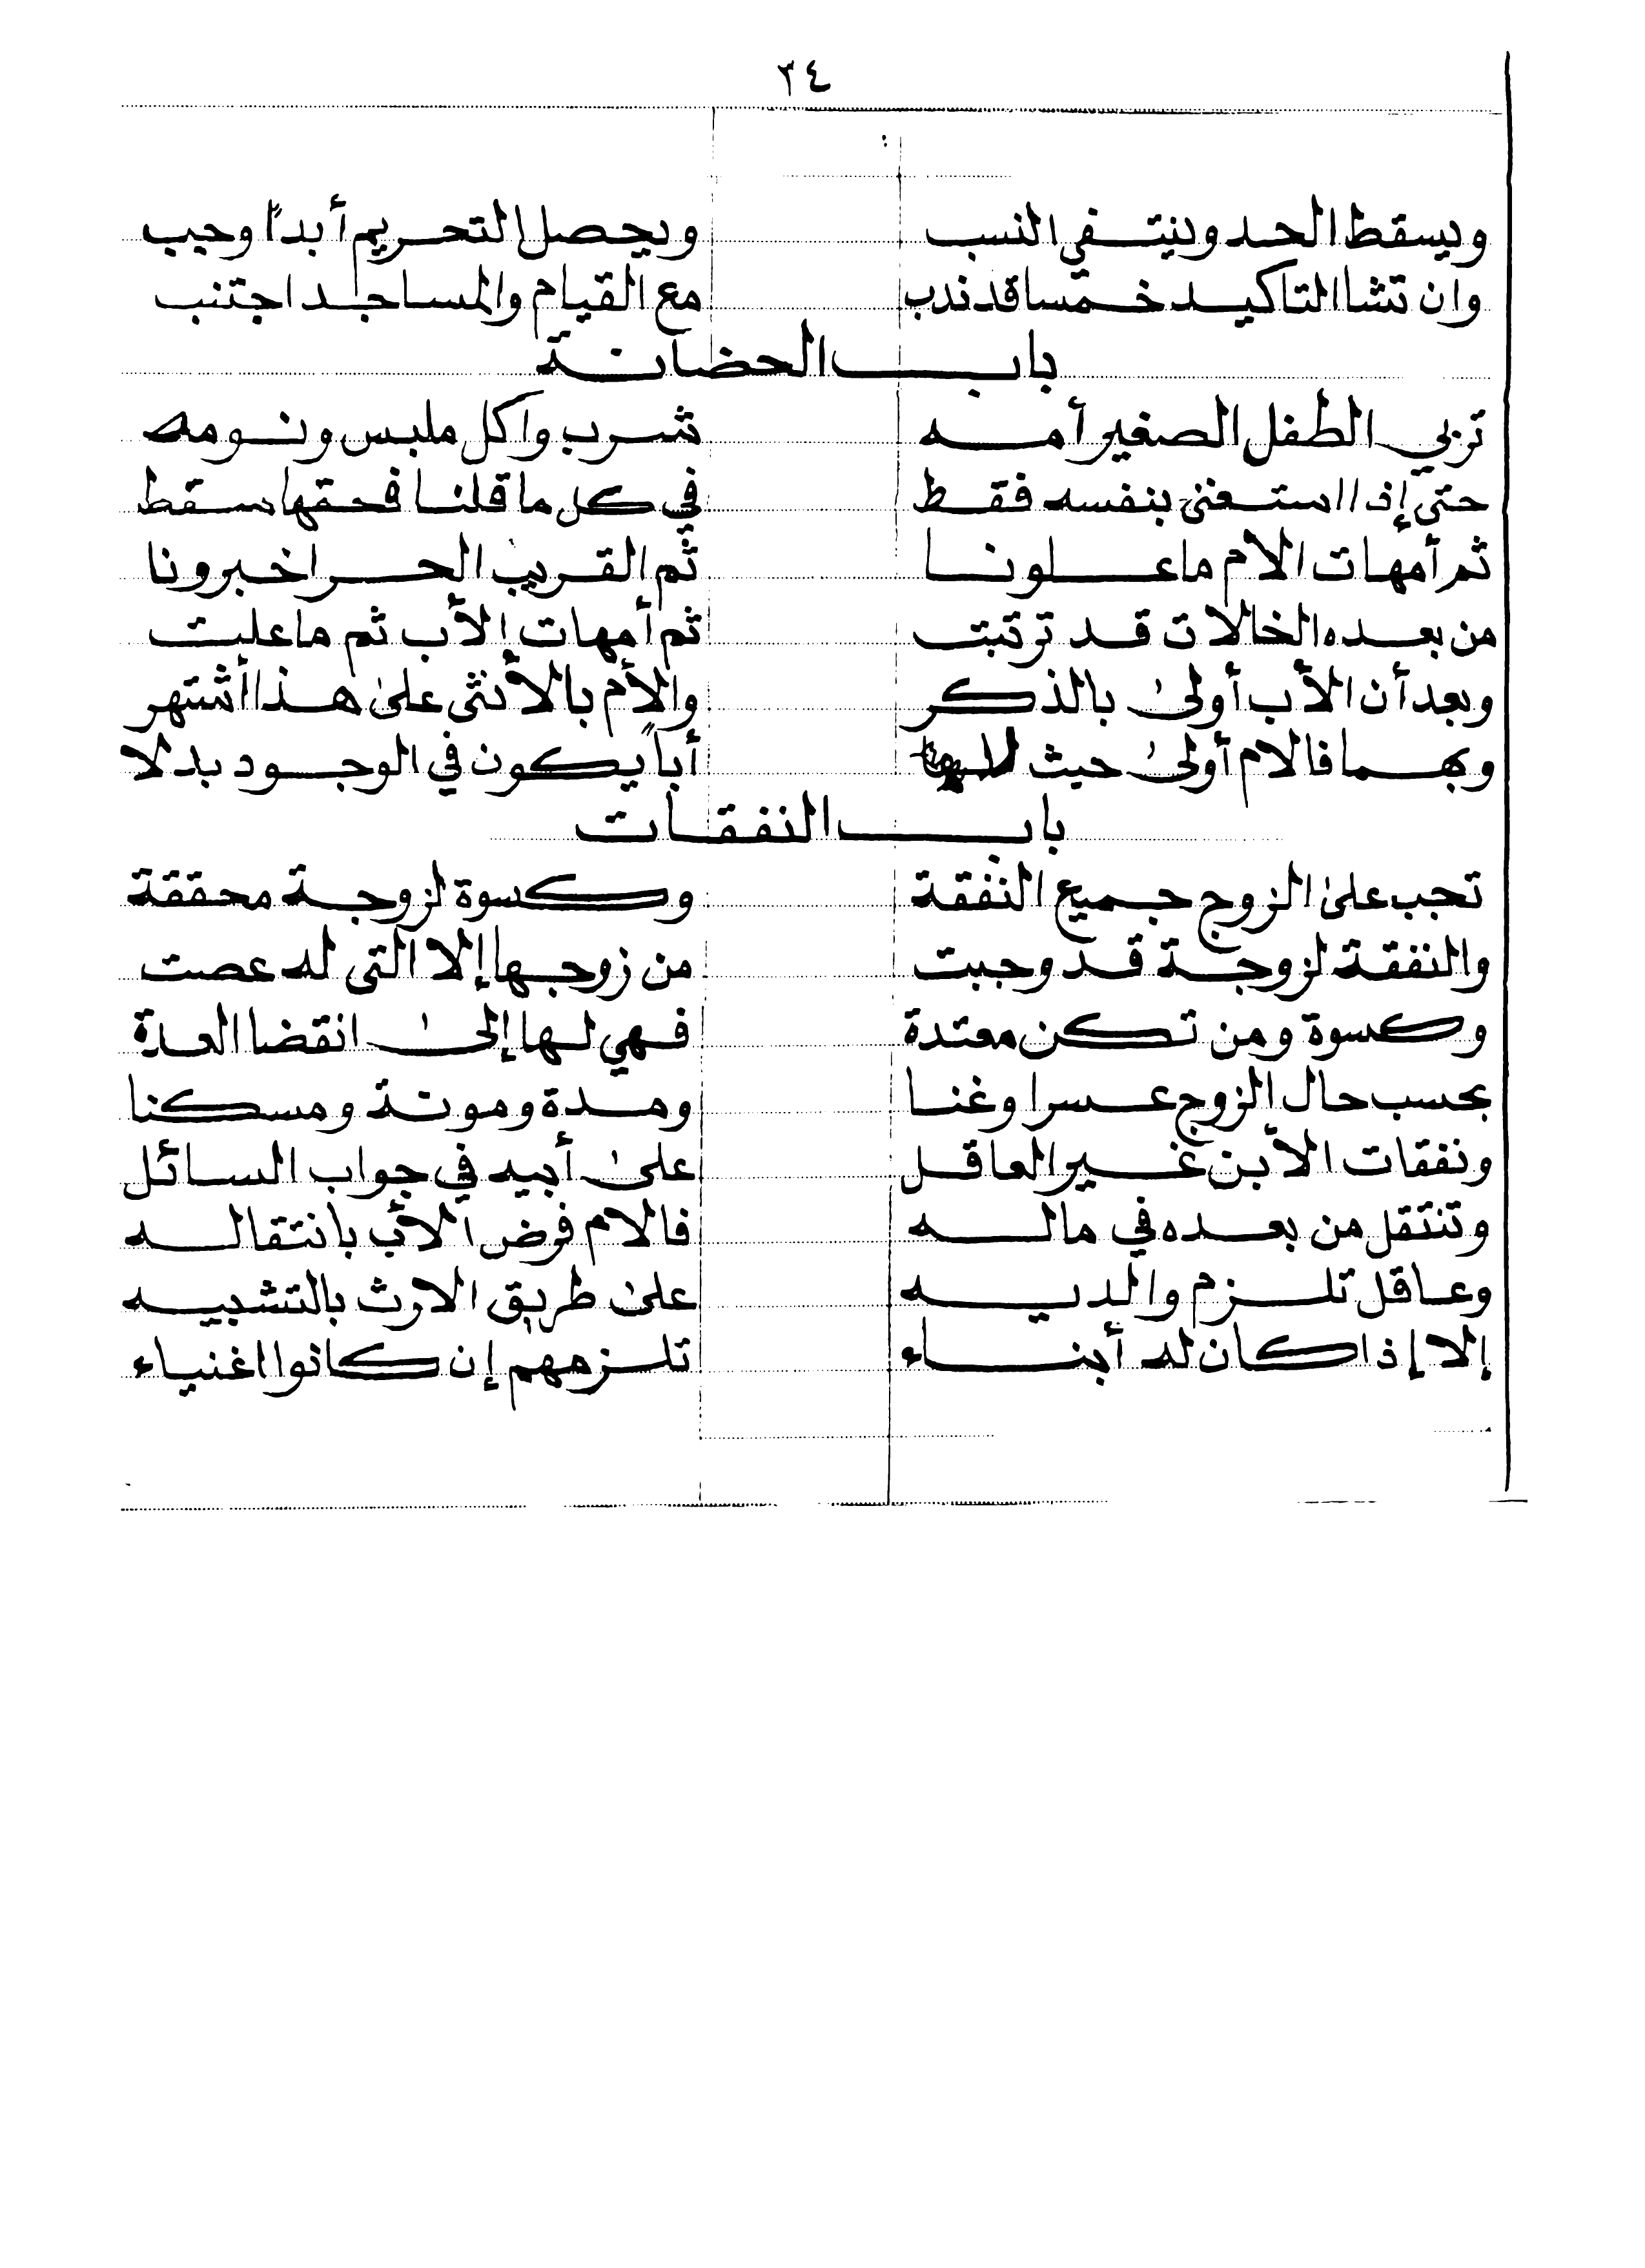 ٣٤
ويسقط الحد وينتفي النسب ويحصل التحريم أبداً وجب
وان تشا التاكيد خمسا قد ندب مع القيام والمساجد اجتنب
باب الحضانة
تربي الطفل الصغير أمه شرب واكل ملبس ونومه
حتى إذا استغنى بنفسه فقط في كل ما قلنا فحقها سقط
ثم أمهات الام ما علونا ثم القريب الحر اخبرونا
من بعده الخالات قد ترتبت ثم أمهات الأب ثم ما علبت
وبعد أن الأب أولى بالذكر والأم بالأنثى على هذا أشتهر
وبهما فالام أولى حيث لا أباً يكون في الوجود بدلا
باب النفقات
تجب على الزوج جميع النفقة وكسوة لزوجة محققة
والنفقة لزوجة قد وجبت من زوجها إلا التي له عصت
وكسوة ومن تكن معتدة فهي لها إلى انقضا العدة
بحسب حال الزوج عسرا وغنا ومدة ومونة ومسكنا
ونفقات الأبن غير العاقل على أبيه في جواب السائل
وتنتقل من بعده في ماله فالام فرض الأب بانتقاله
وعاقل تلزم والديه على طريق الارث بالتشبيه
إلا إذا كان له أبناء تلزمهم إن كانوا اغنياء